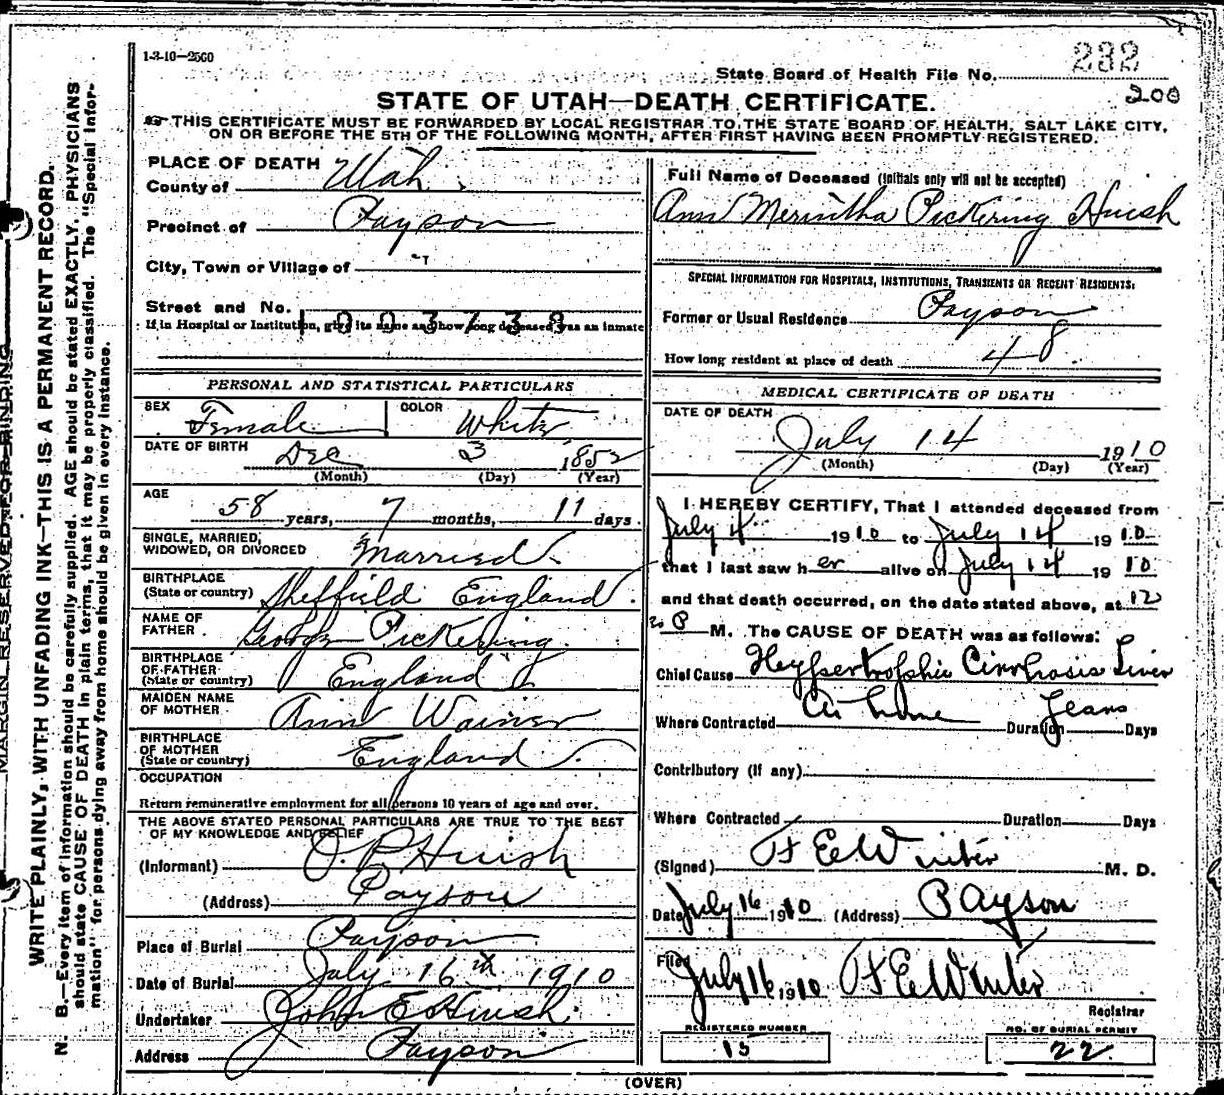 1-3-10—2560
State Board of Health File No. 232
200
STATE OF UTAH—DEATH CERTIFICATE.
THIS CERTIFICATE MUST BE FORWARDED BY LOCAL REGISTRAR TO THE STATE BOARD OF HEALTH, SALT LAKE CITY,
ON OR BEFORE THE 5TH OF THE FOLLOWING MONTH, AFTER FIRST HAVING BEEN PROMPTLY REGISTERED.
MARGIN RESERVED FOR BINDING
WRITE PLAINLY, WITH UNFADING INK—THIS IS A PERMANENT RECORD.
N. B.—Every item of information should be carefully supplied. AGE should be stated EXACTLY. PHYSICIANS
should state CAUSE OF DEATH in plain terms, that it may be properly classified. The "Special Infor-
mation" for persons dying away from home should be given in every instance.
PLACE OF DEATH
County of Utah
Precinct of Payson
City, Town or Village of
Street and No.
If in Hospital or Institution, give its name and how long deceased was an inmate
003739
PERSONAL AND STATISTICAL PARTICULARS
SEX Female COLOR White
DATE OF BIRTH Dec 3 1852
(Month) (Day) (Year)
AGE
58 years, 7 months, 11 days
SINGLE, MARRIED,
WIDOWED, OR DIVORCED Married
BIRTHPLACE
(State or country) Sheffield England
NAME OF
FATHER George Pickering
BIRTHPLACE
OF FATHER
(State or country) England
MAIDEN NAME
OF MOTHER Ann Wainer
BIRTHPLACE
OF MOTHER
(State or country) England
OCCUPATION
Return remunerative employment for all persons 10 years of age and over.
THE ABOVE STATED PERSONAL PARTICULARS ARE TRUE TO THE BEST
OF MY KNOWLEDGE AND BELIEF
(Informant) J. P. Huish
(Address) Payson
Place of Burial Payson
Date of Burial July 16th 1910
Undertaker John E Huish
Address Payson
Full Name of Deceased (Initials only will not be accepted)
Ann Merintha Pickering Huish
SPECIAL INFORMATION FOR HOSPITALS, INSTITUTIONS, TRANSIENTS OR RECENT RESIDENTS:
Former or Usual Residence Payson
How long resident at place of death 48
MEDICAL CERTIFICATE OF DEATH
DATE OF DEATH
July 14 1910
(Month) (Day) (Year)
I HEREBY CERTIFY, That I attended deceased from
July 4 1910 to July 14 1910
that I last saw her alive on July 14 1910
and that death occurred, on the date stated above, at 12
20 P M. The CAUSE OF DEATH was as follows:
Chief Cause Heypertrophic Cirrhosis Liver
Where Contracted At home Duration Years Days
Contributory (if any)
Where Contracted Duration Days
(Signed) H E Winter M. D.
Date July 16 1910 (Address) Payson
Filed July 16 1910 H E Winter
Registrar
REGISTERED NUMBER
15
NO. OF BURIAL PERMIT
22
(OVER)